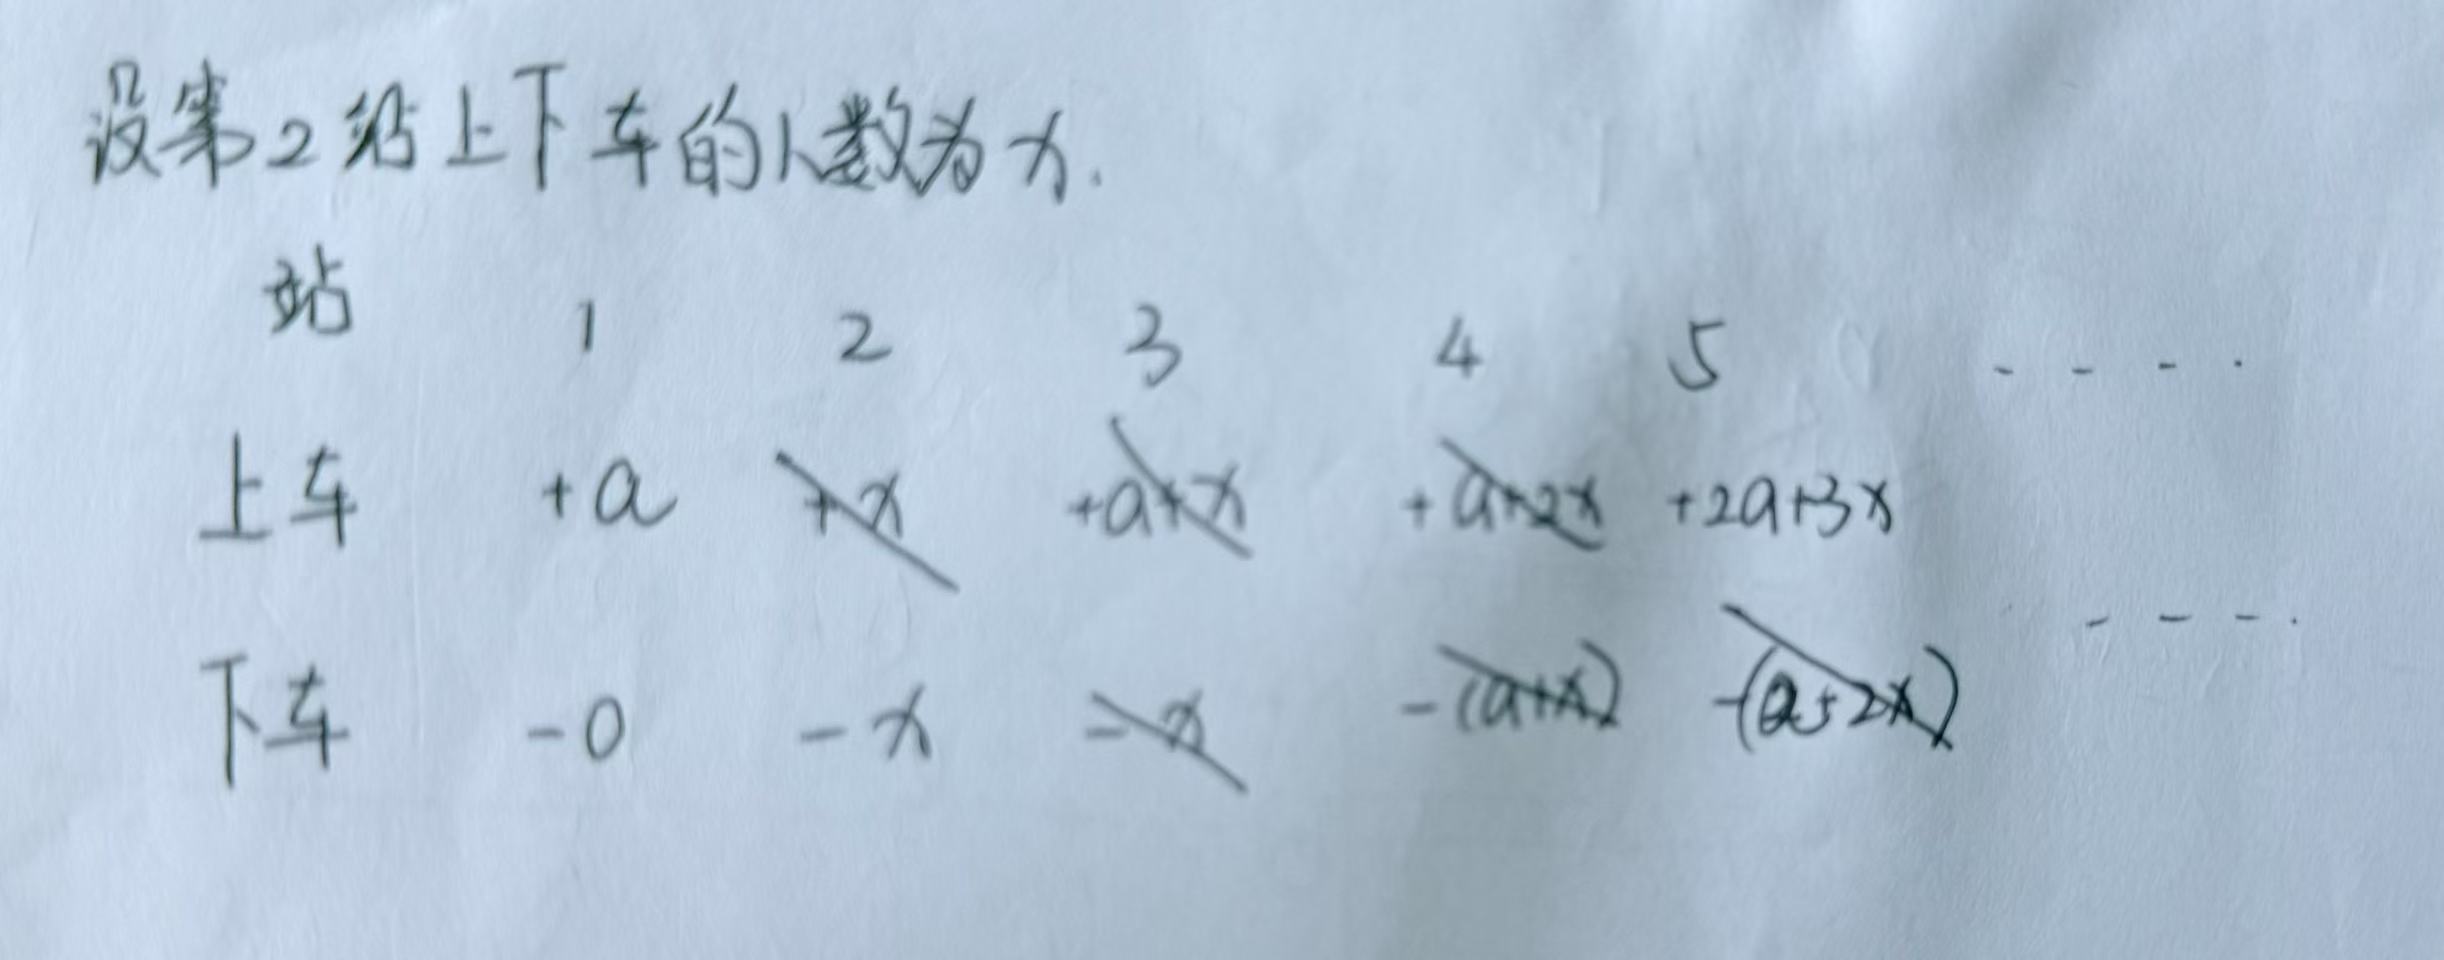 设第2站上下车的人数为x.
站 1 2 3 4 5 ····
上车 +a +x +a+x +a+2x +2a+3x
下车 -0 -x -x -(a+x) -(a+2x) ····